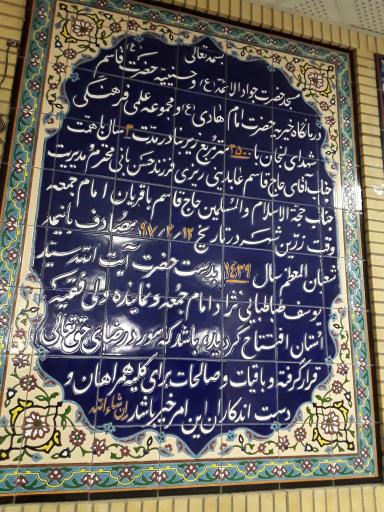 بسمه تعالی
مسجد حضرت جوادالائمه (ع) و حسینیه حضرت قاسم (ع)
درمانگاه خیریه حضرت امام هادی (ع) و مجموعه علمی فرهنگی
شهدای لنجان با ۳۵۰۰ متر مربع زیربنا در مدت ۳ سال با همت
جناب آقای حاج قاسم عابدینی ریزی فرزند حسن بانی محترم و مدیریت
جناب حجة الاسلام والمسلمین حاج قاسم باقریان امام جمعه
وقت زرین شهر در تاریخ ۹۷/۲/۱۲ مصادف با نیمه
شعبان المعظم سال ۱۴۳۹ بدست حضرت آیت الله سید
یوسف طباطبایی نژاد امام جمعه و نماینده ولی فقیه
استان افتتاح گردید، باشد که مورد رضای حق تعالی
قرار گرفته و باقیات و صالحات برای کلیه همراهان و
دست اندکاران این امر خیر باشد ان شاءالله